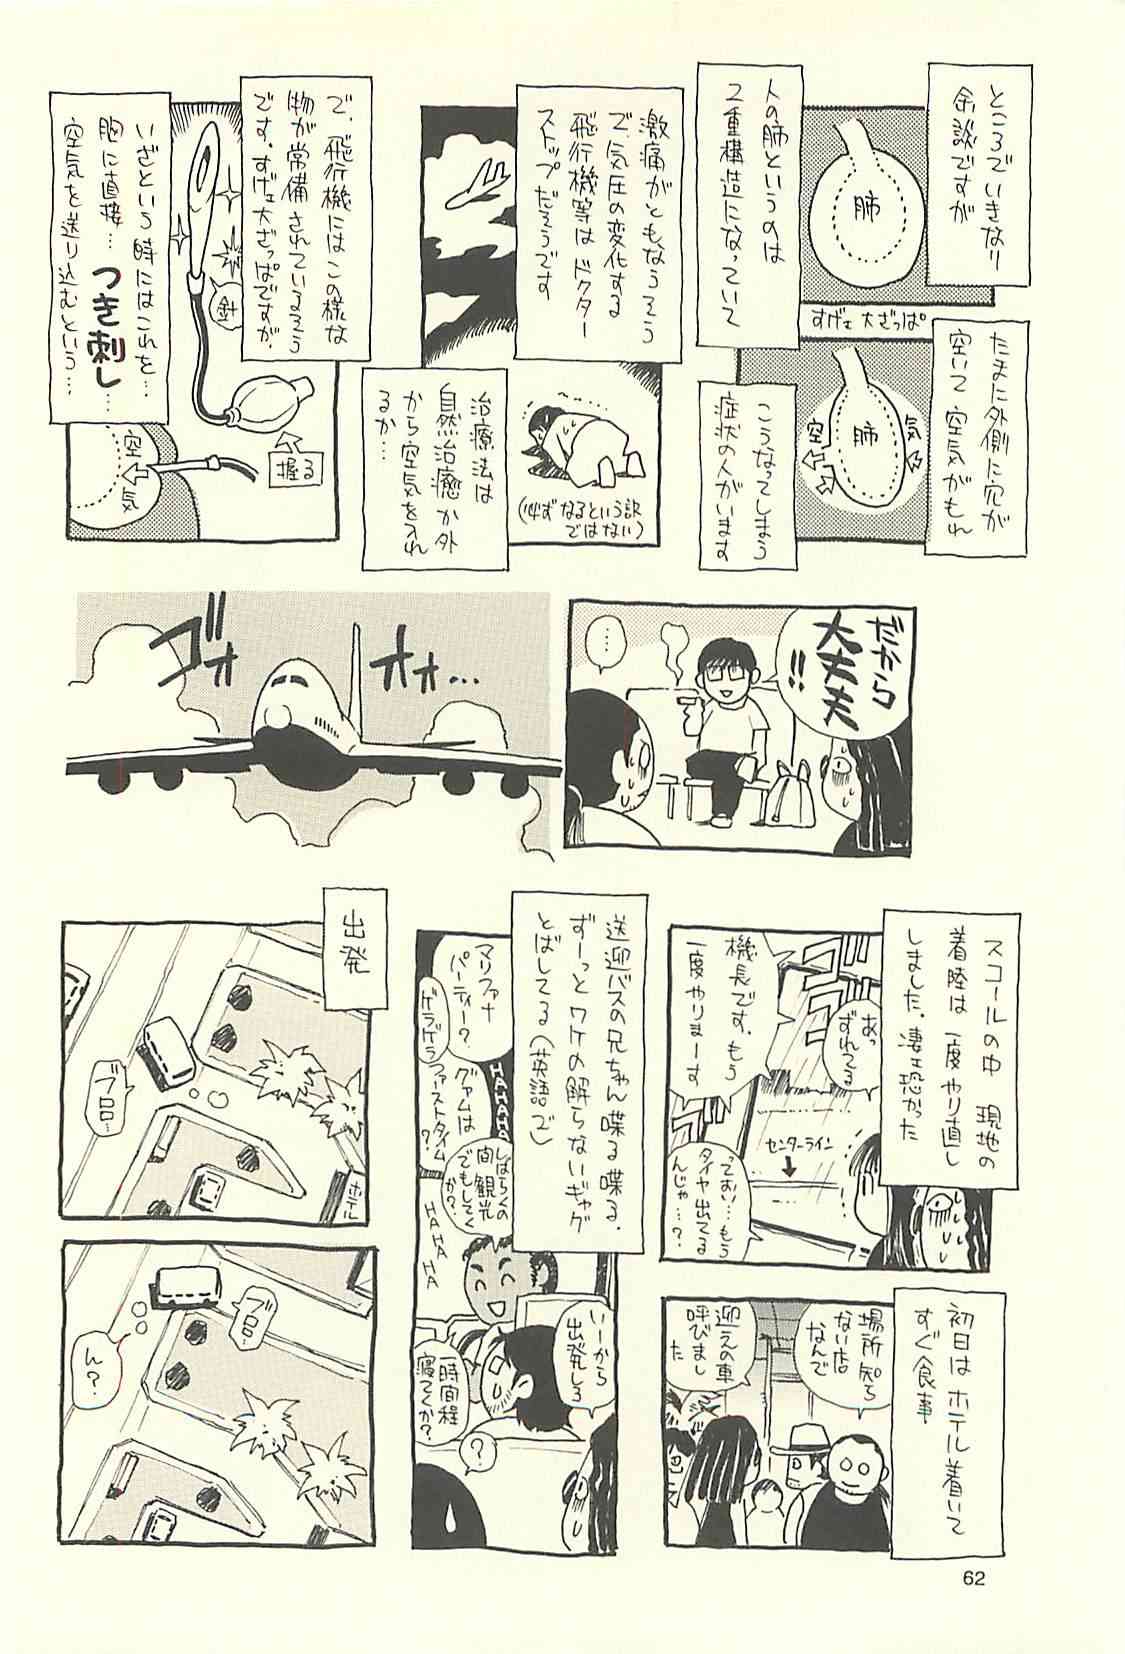 ところでいきなり
余談ですが
肺
すげェ大ざっぱ
人の肺というのは
2重構造になっていて
たまに外側に穴が
空いて空気がもれ
肺
空
気
こうなってしまう
症状の人がいます
激痛がともなうそう
で、気圧の変化する
飛行機等はドクター
ストップだそうです
(必ずなるという訳
ではない)
治療法は
自然治癒か外
から空気を入れ
るか…
で、飛行機にはこの様な
物が常備されているそう
です。すげェ大ざっぱですが、
針
握る
いざという時にはこれを…
胸に直接…つき刺し…
空気を送り込むという…
空
気
だから
大丈夫
!!
…
ゴオ
オオ…
スコールの中 現地の
着陸は一度やり直し
しました。凄ェ恐かった
あっ
ずれてる
機長です。もう
一度やりまーす
センターライン
っておい…もう
タイヤ出てる
んじゃ…?
初日はホテル着いて
すぐ食事
場所知ら
ない店
なんで
迎えの車
呼びまし
た
送迎バスの兄ちゃん喋る喋る。
ずーっとワケの解らないギャグ
とばしてる(英語で)
マリファナ
パーティー?
ゲラゲラ
HAHAHA
グァムは
ファーストタイム
?
しばらくの
間観光
でもしてく
か?
HAHA
HAHA
いーから
出発しろ
一時間程
寝てくか?
?
出発
ブロロ…
ホテル
ブロロ…
ん?
62